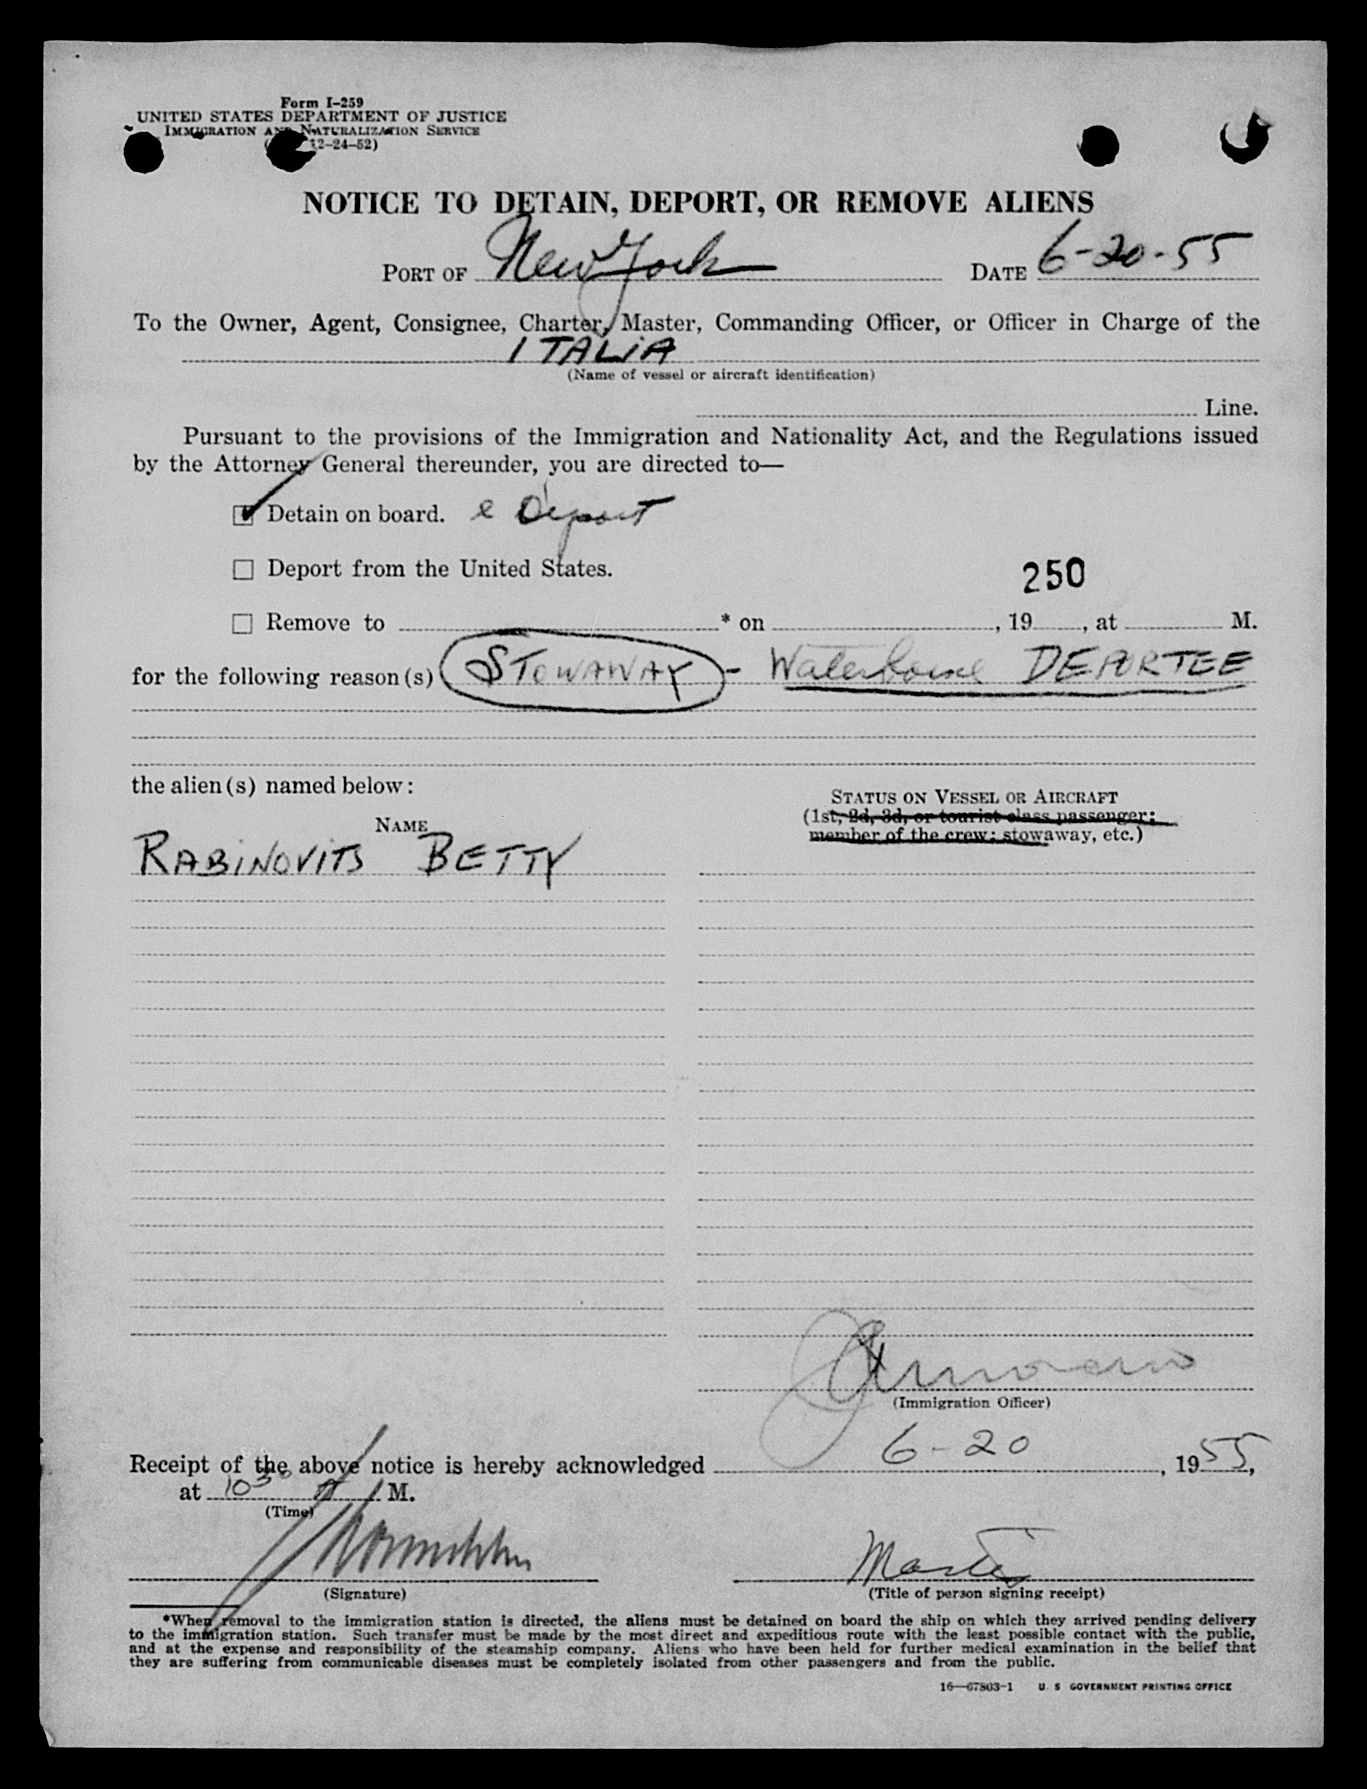 Form I-259
UNITED STATES DEPARTMENT OF JUSTICE
IMMIGRATION AND NATURALIZATION SERVICE
12-24-52)
NOTICE TO DETAIN, DEPORT, OR REMOVE ALIENS
PORT OF New York DATE 6-20-55
To the Owner, Agent, Consignee, Charter, Master, Commanding Officer, or Officer in Charge of the
ITALIA
(Name of vessel or aircraft identification)
Line.
Pursuant to the provisions of the Immigration and Nationality Act, and the Regulations issued
by the Attorney General thereunder, you are directed to—
Detain on board. e Deport
Deport from the United States.
250
Remove to * on , 19 , at M.
for the following reason(s) STOWAWAY - Waterborne DEPORTEE
the alien(s) named below:
STATUS ON VESSEL OR AIRCRAFT
(1st, 2d, 3d, or tourist class passenger;
member of the crew; stowaway, etc.)
NAME
RABINOVITS BETTY
(Immigration Officer)
Receipt of the above notice is hereby acknowledged 6-20, 1955,
at 10 30 A M.
(Time)
Master
(Signature) (Title of person signing receipt)
*When removal to the immigration station is directed, the aliens must be detained on board the ship on which they arrived pending delivery
to the immigration station. Such transfer must be made by the most direct and expeditious route with the least possible contact with the public,
and at the expense and responsibility of the steamship company. Aliens who have been held for further medical examination in the belief that
they are suffering from communicable diseases must be completely isolated from other passengers and from the public.
16—67803-1 U. S. GOVERNMENT PRINTING OFFICE